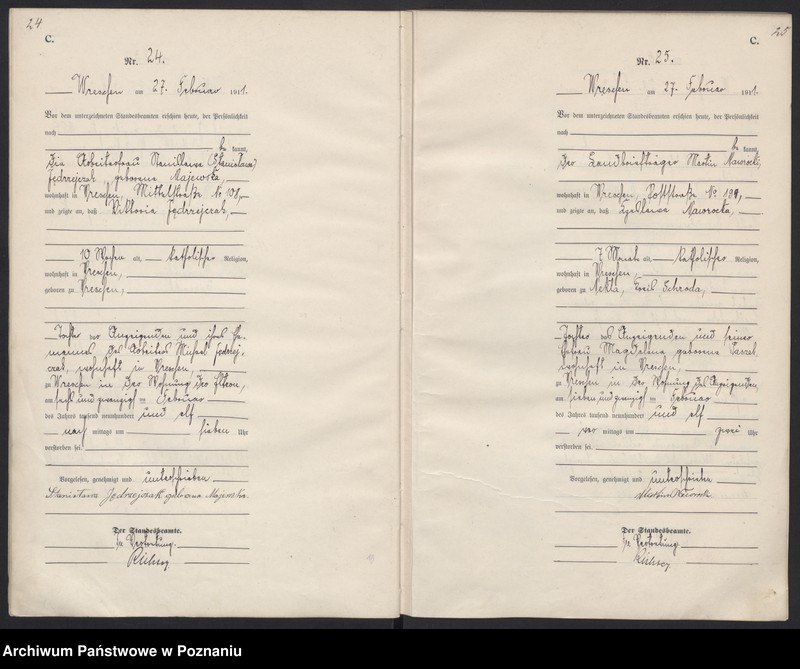 24
C.
Nr. 24.
Wreschen am 27. Februar 1911.
Vor dem unterzeichneten Standesbeamten erschien heute, der Persönlichkeit
nach
be kannt,
die Arbeiterfrau Stanislawa (Stanisława)
Jędrzejczak geborene Majewska,
wohnhaft in Wreschen, Mittelstraße No 108,
und zeigte an, daß Viktoria Jędrzejczak,
10 Wochen alt, katholischer Religion,
wohnhaft in Wreschen,
geboren zu Wreschen,
Tochter der Anzeigenden und ihres Ehe-
mannes des Arbeiters Michael Jędrzej-
czak, wohnhaft in Wreschen,
zu Wreschen in der Wohnung der Eltern,
am fünfundzwanzigsten Februar
des Jahres tausend neunhundert und elf
nach mittags um sieben Uhr
verstorben sei.
Vorgelesen, genehmigt und unterschrieben
Stanisława Jędrzejczak geborene Majewska
Der Standesbeamte.
In Vertretung.
25
C.
Nr. 25.
Wreschen am 27. Februar 1911.
Vor dem unterzeichneten Standesbeamten erschien heute, der Persönlichkeit
nach
be kannt,
der Landbriefträger Martin Nawrocki,
wohnhaft in Wreschen, Poststraße No
und zeigte an, daß Nawrocka,
7 Monate alt, katholischer Religion,
wohnhaft in Wreschen,
geboren zu Nekla, Kreis Schroda,
Tochter des Anzeigenden und seiner
Ehefrau Magdalena geborene
wohnhaft in Wreschen,
zu Wreschen in der Wohnung des Anzeigenden,
am siebenundzwanzigsten Februar
des Jahres tausend neunhundert und elf
vor mittags um zwei Uhr
verstorben sei.
Vorgelesen, genehmigt und unterschrieben
Der Standesbeamte.
In Vertretung.
Archiwum Państwowe w Poznaniu